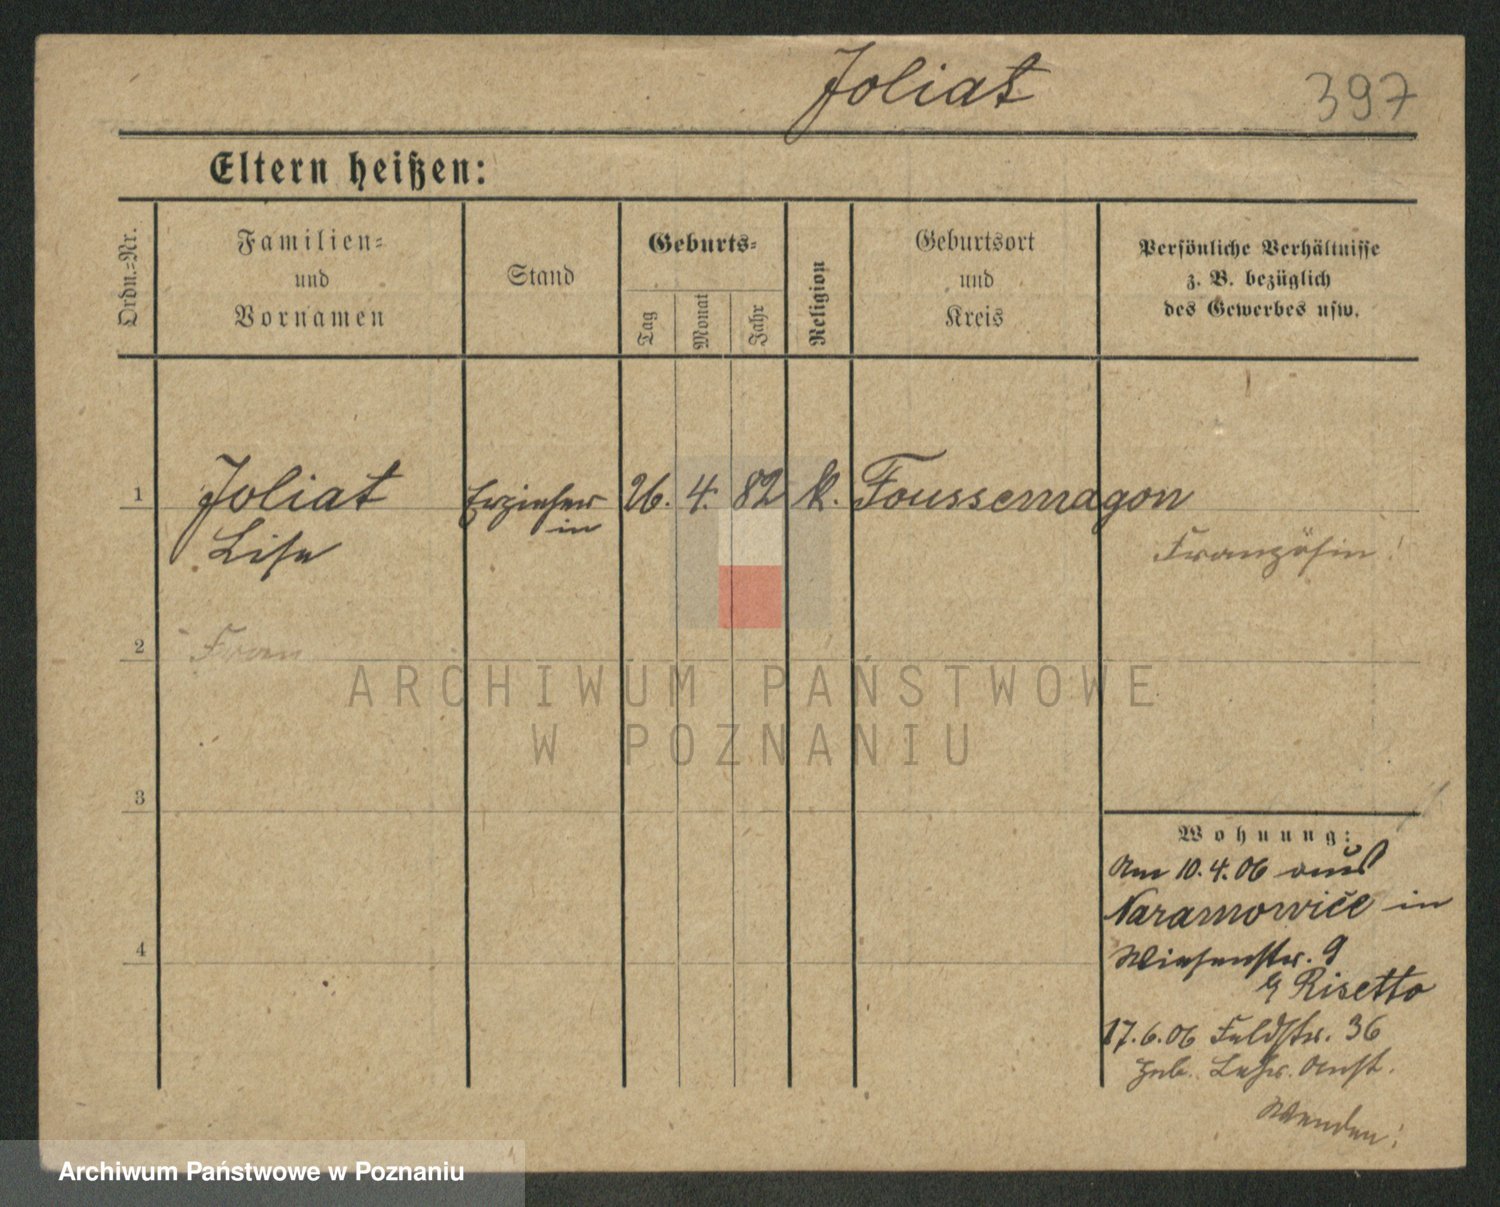 Joliat
397
Eltern heißen:
Ordn.=Nr.
Familien=
und
Vornamen
Stand
Geburts=
Tag
Monat
Jahr
Religion
Geburtsort
und
Kreis
Persönliche Verhältnisse
z. B. bezüglich
des Gewerbes usw.
1 Joliat Erzieher 26. 4. 82 k. Foussemagon
in
Lise
Französin!
2
ARCHIWUM PAŃSTWOWE
W POZNANIU
3
Wohnung:
Am 10.4.06 aus
Naramowice in
4
Wiesenstr. 9
Risetto
17.6.06 Feldstr. 36
Lehr. Anst.
Wenden!
Archiwum Państwowe w Poznaniu